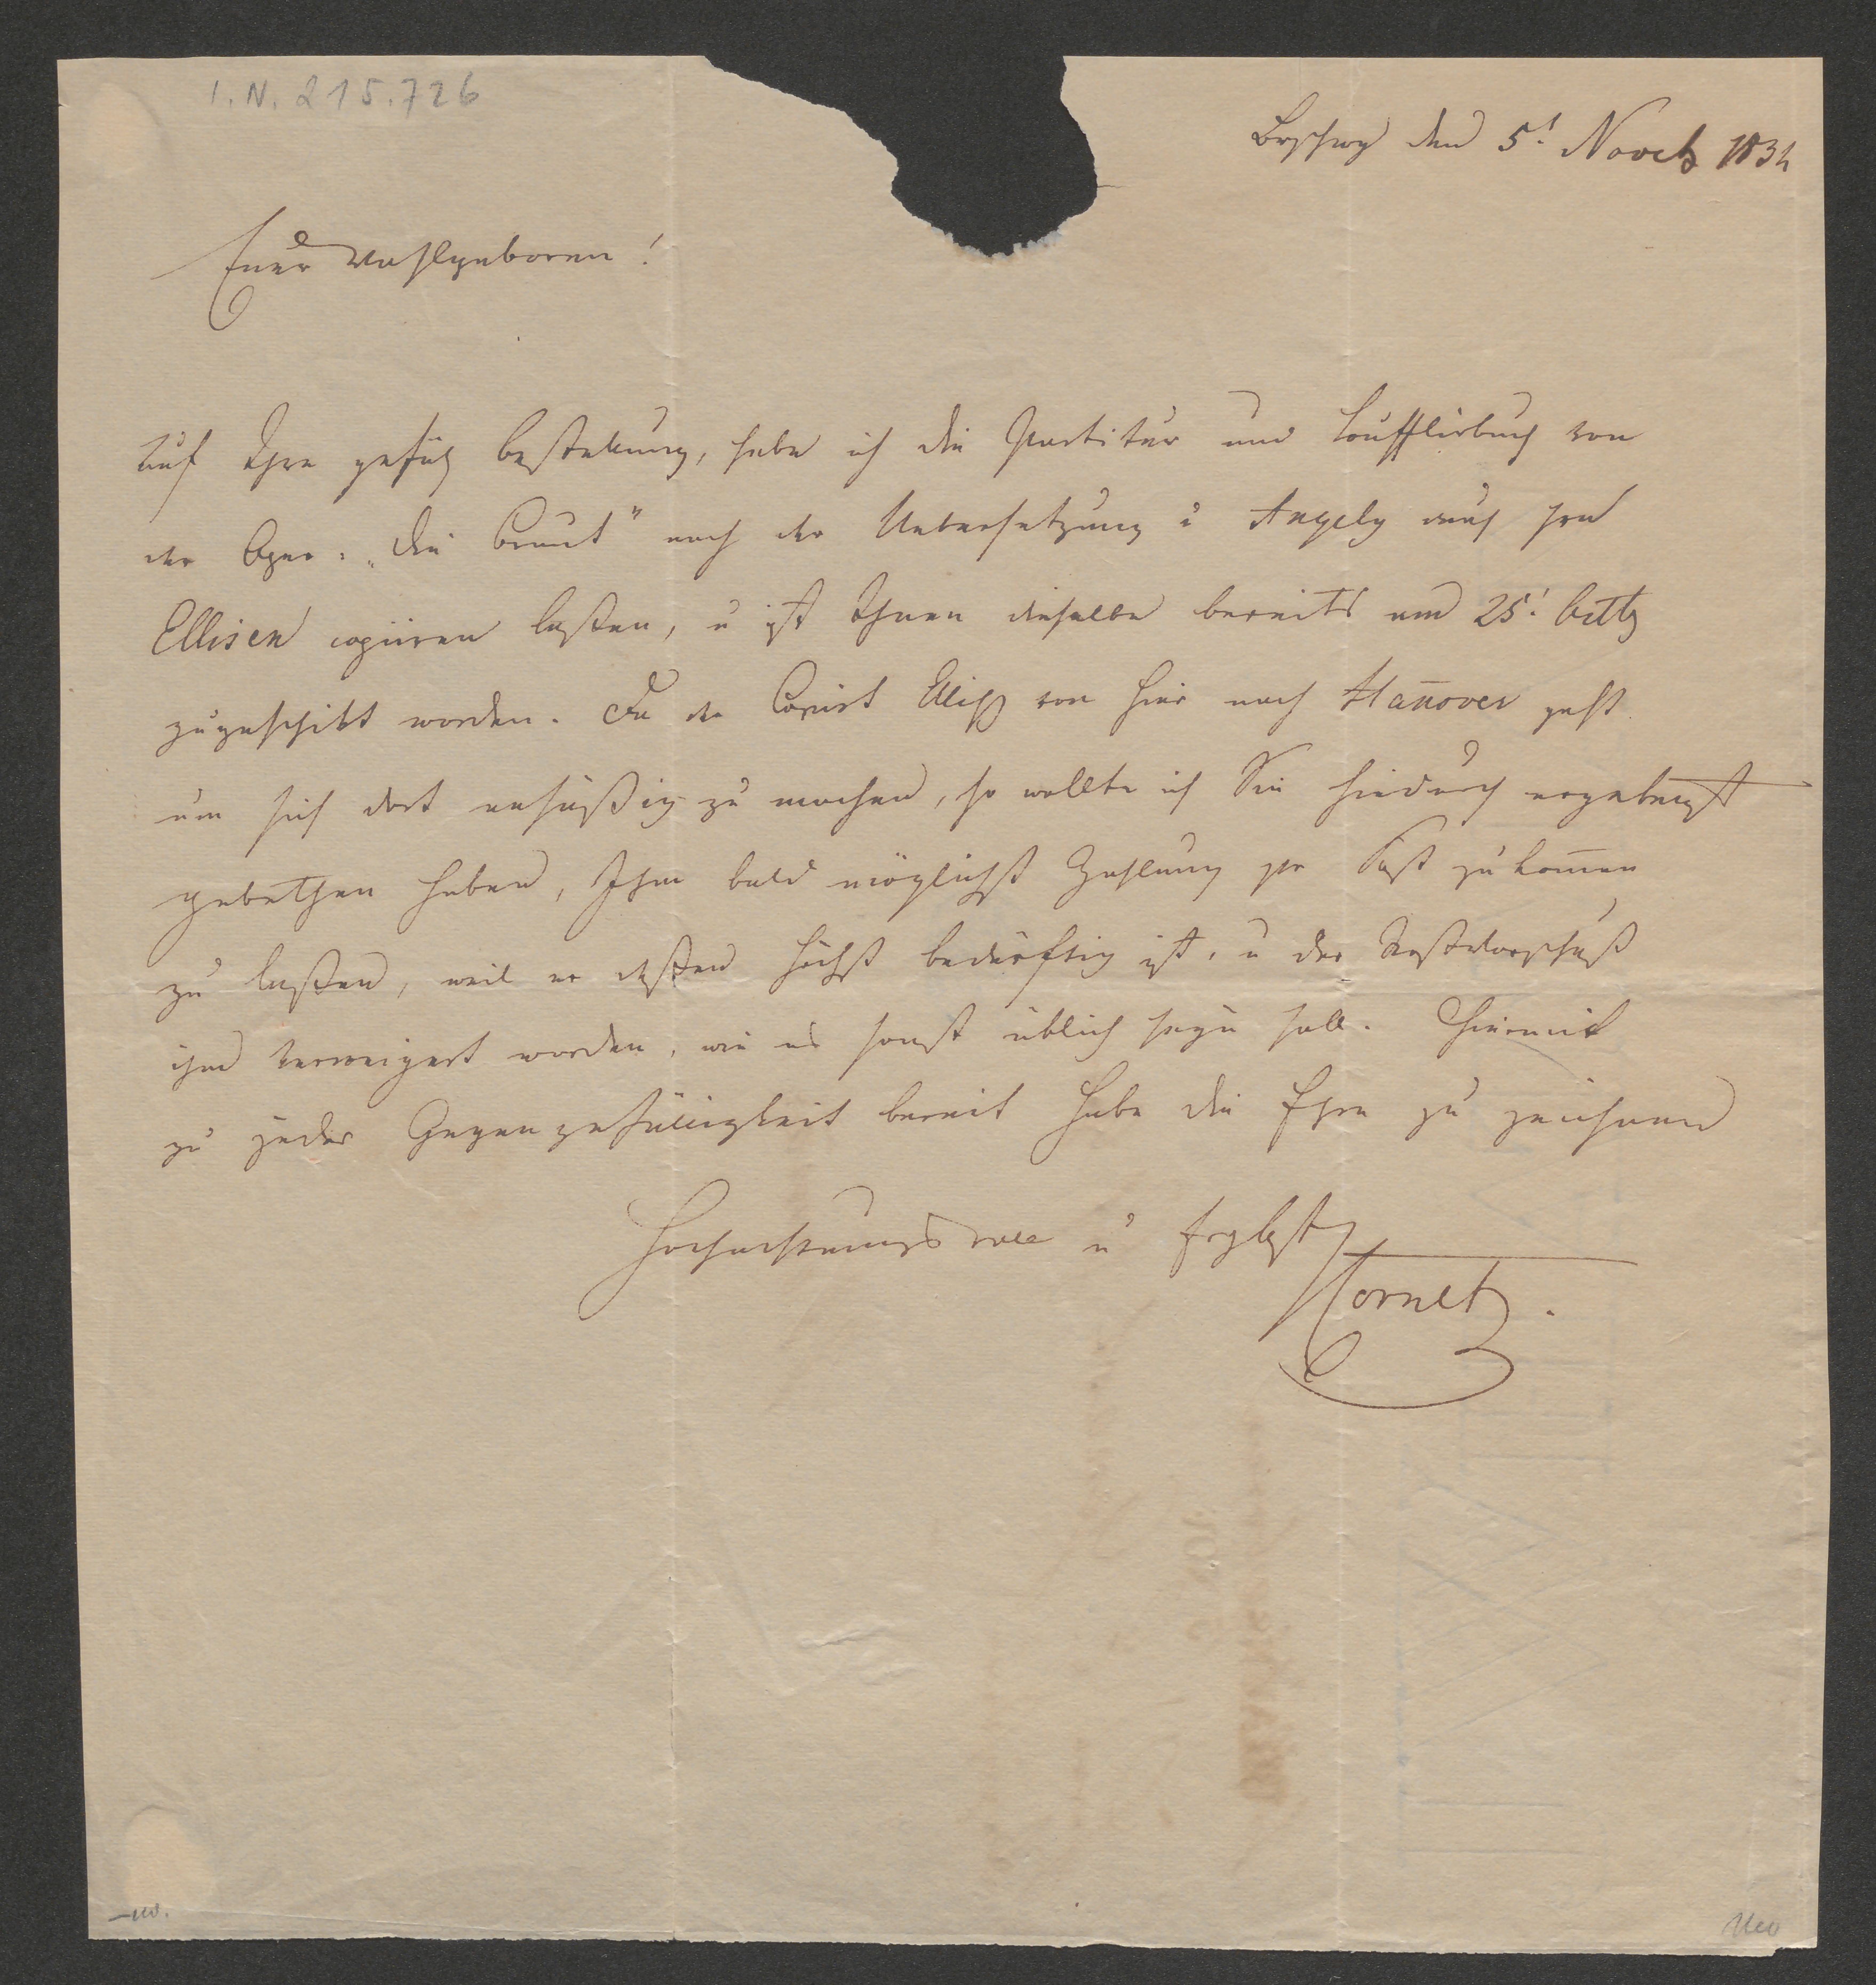 I.N. 215.726
Brschwg den 5t Novebr 1834
Euer Wohlgeboren!
Auf Ihre gefäll Bestellung, habe ich die Partitur und Soufflirbuch von
der Oper: „die Braut" nach der Uebersetzung v Angely durch Hrn
Ellisen copiiren laßen, u ist Ihnen dieselbe bereits am 25t Octb
zugeschikt worden. Da der Copist Elliß von hier nach Hanover geht
um sich dort ansäßig zu machen, so wollte ich Sie hiedurch ergebenst
gebethen haben, Ihm bald möglichst Zahlung pr Post zukomen
zu laßen, weil er deßen höchst bedürftig ist, u der Postvorschuß
ihm verweigert worden, wie es sonst üblich seyn soll. Hiermit
zu jeder Gegengefälligkeit bereit habe die Ehre zu zeichnen
Hochachtungsvoll u Ergbst
Cornet.